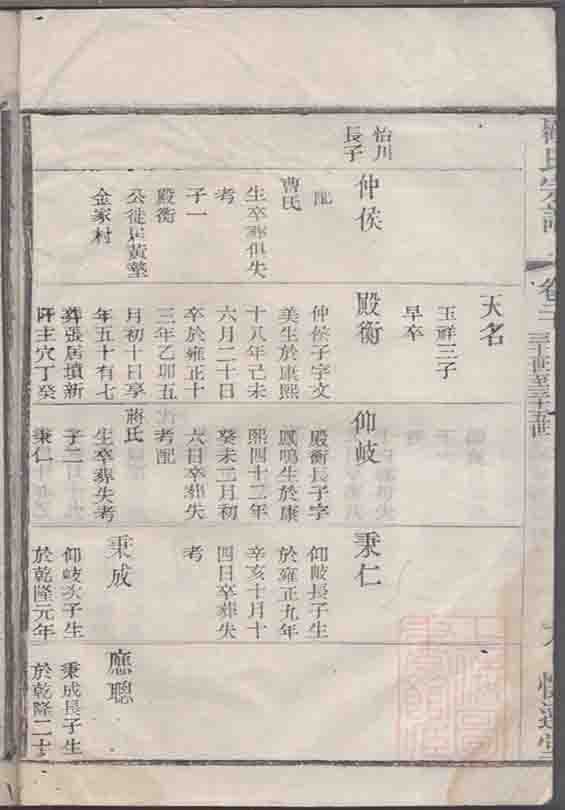 卷二
三十世至三十五世
天名
玉祥三子
早卒
怡川
長子
仲侯
配
曹氏
生卒葬俱失
考
子一
殿衡
公徙居黃墊
金家村
殿衡
仲侯子字文
美生於康熙
十八年己未
六月二十日
卒於雍正十
三年乙卯五
月初十日享
年五十有七
葬張居墳新
阡主穴丁癸
仰岐
殿衡長子字
鳳鳴生於康
熙四十二年
癸未二月初
六日卒葬失
考配
蔣氏
生卒葬失考
子二
秉仁
秉仁
仰岐長子生
於雍正九年
辛亥十月十
四日卒葬失
考
秉成
仰岐次子生
於乾隆元年
應聰
秉成長子生
於乾隆二十